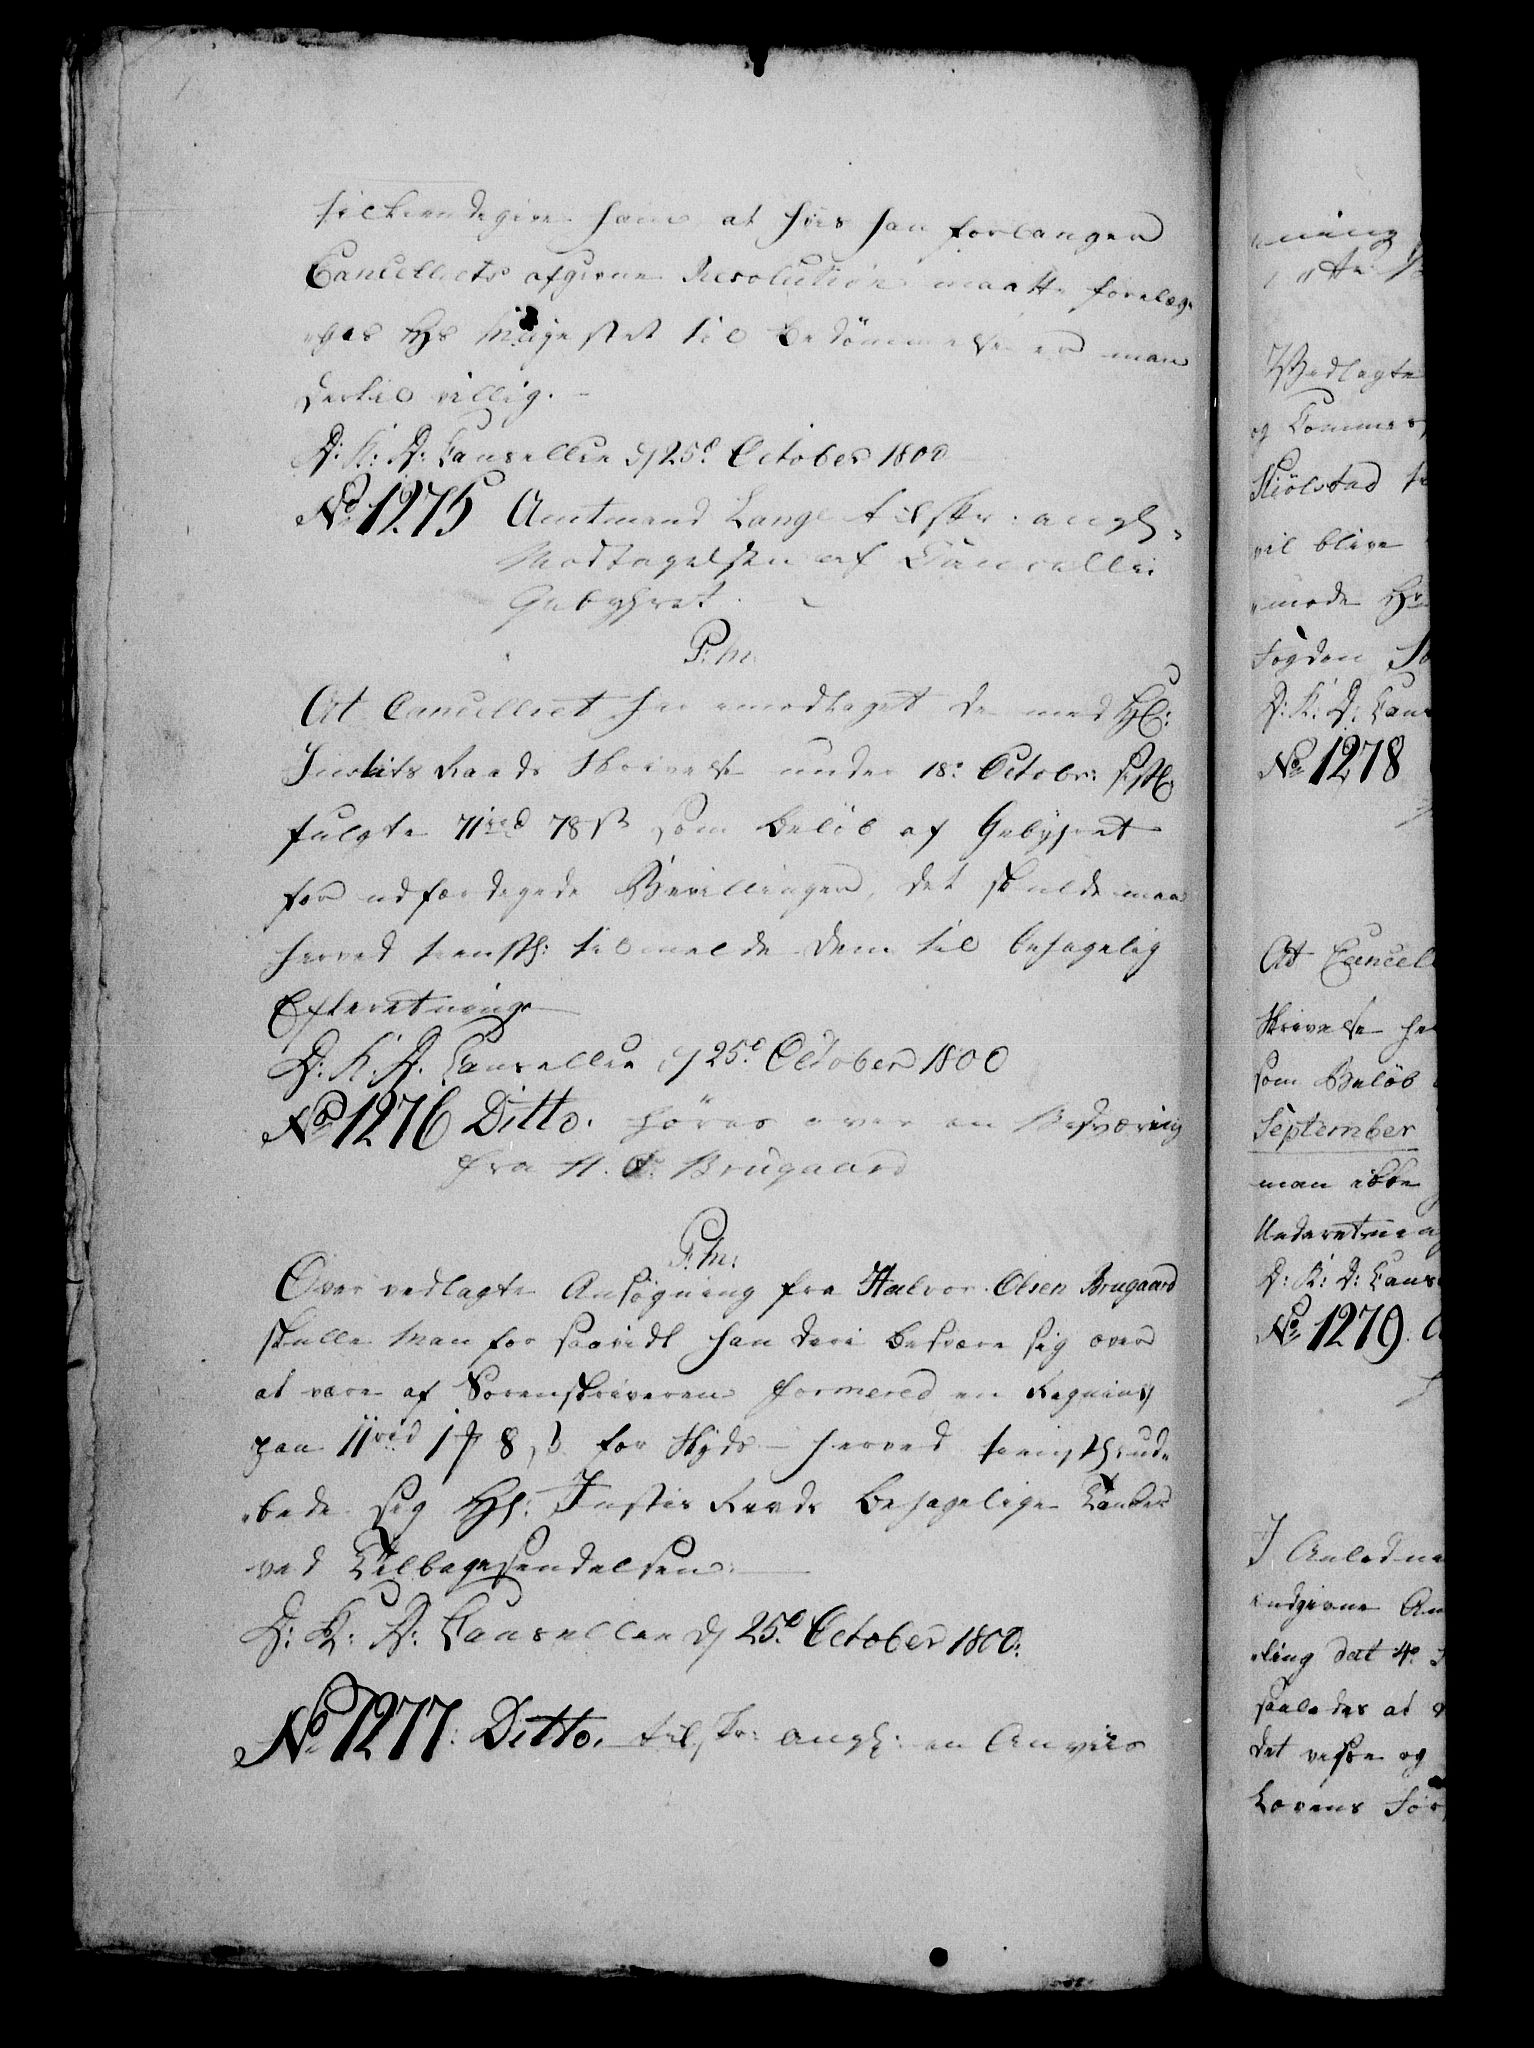 tilkiendegive ham at hvis han forlanger
Cancelliets afgivne Resolution maatte forelæg-
-ges Hs Majestet til Bedömmelse er man
dertil villig.
D: K: D: Cancellie d 25d October 1800
No 1275 Amtmand Lange tilskr: angh:
Modtagelsen af Cancellie
Gebyhret.
P: M:
At Cancelliet har modtaget de med Hl:
Justits Raads Skrivelse under 18: Octobr:
fulgte 71 rd 78 s som Beløb af Gebyhret
for udfærdegede Bevillinger, det skulde man
herved tienstl: tilmelde dem til behagelig
Efteretning
D: K: D: Cancellie d 25d October 1800
No 1276 Ditto. høres over en Besværing
fra H. O. Brugaard
P: M:
Over vedlagte Ansøgning fra Halvor Olsen Brugaard
skulle man for saavidt han deri besvære sig over
at være af Sorenskriveren formered en Regning
paa 11 rd 1 8 s for Skyds herved tienstl: ud-
-bede sig Hl: Justis Raads behagelige Tanker
ved Tilbagesendelsen.
D: K: D: Cancellie d 25d October 1800.
No 1277. Ditto. tilskr: angh: en Anviis
-ning
Vedlagte
og Commer
Skiölstad
vil blive
-mode Hr
Fogden
D: K: D: Canc
No 1278
At Cancel
Skrivelse
som Beløb
September
man ikke
Underetning
D: K: D: Canc
No 1279.
I Anledn
indgivne An
-ling dat 4
saaledes at
det visse og
Lovens For